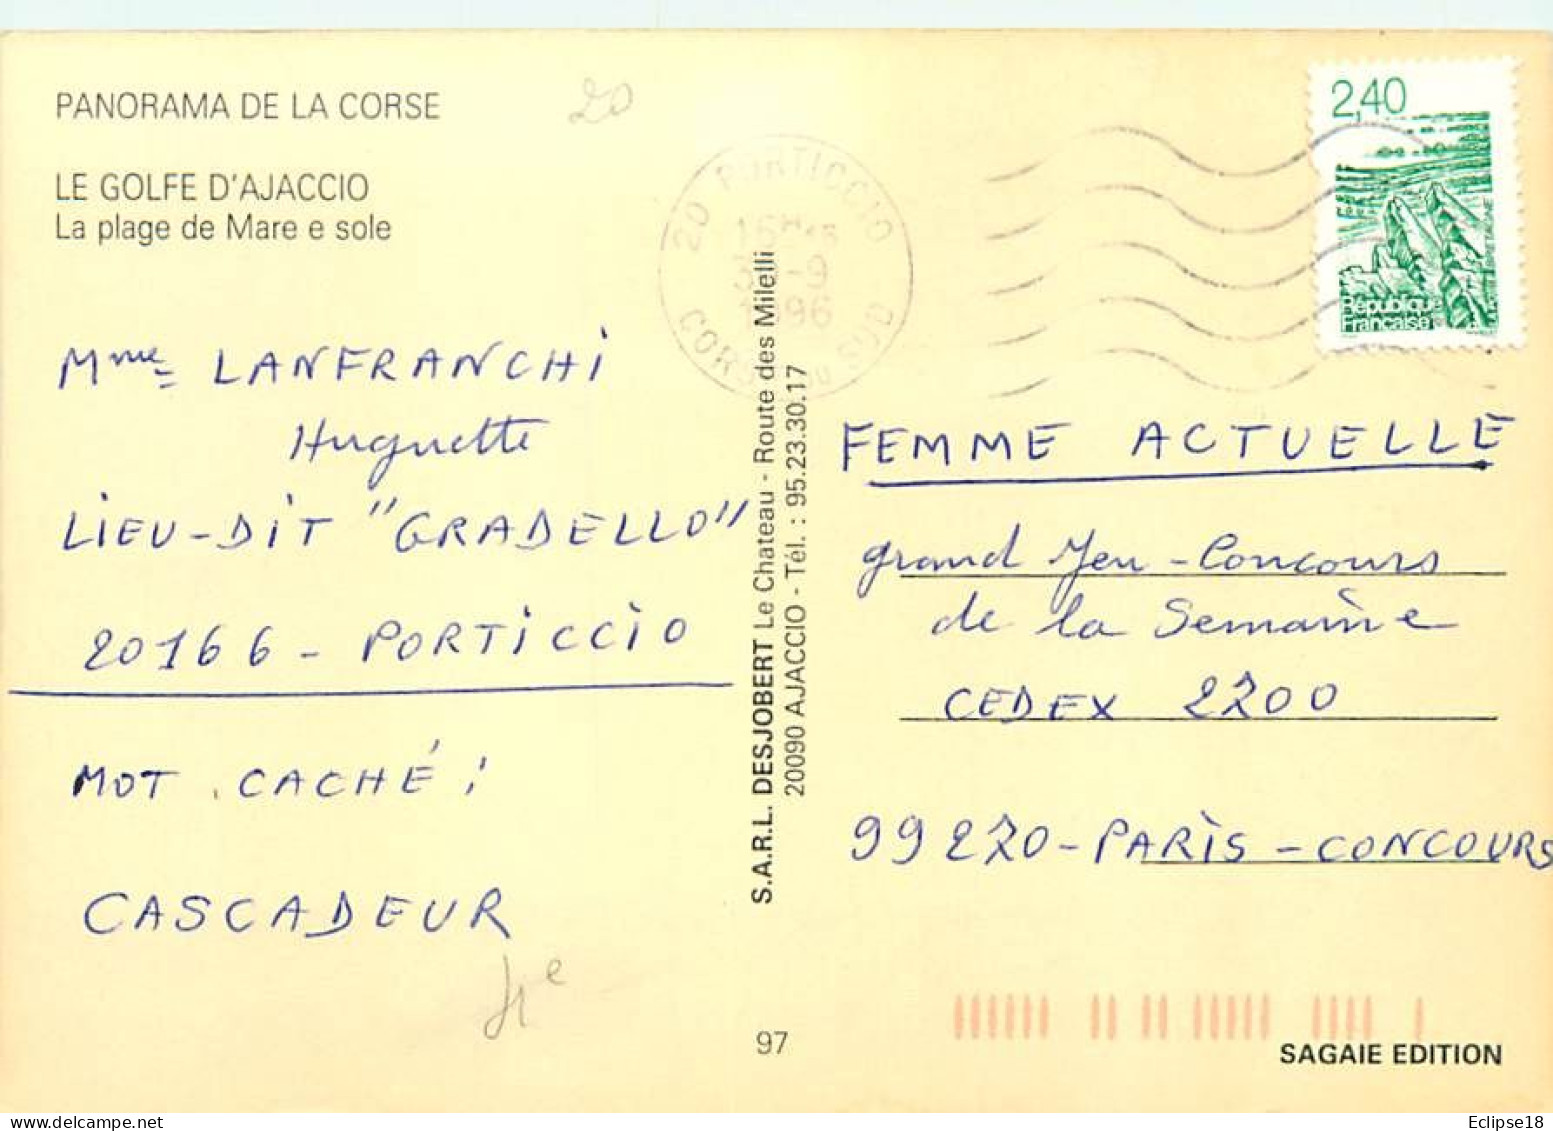 PANORAMA DE LA CORSE
LE GOLFE D'AJACCIO
La plage de Mare e sole
20
20 PORTICCIO
-9
1996
CORSE DU SUD
2,40
BRETAGNE
République
Française
Mme LANFRANCHI
Huguette
LIEU-DIT "GRADELLO"
20166 - PORTICCIO
MOT CACHÉ :
CASCADEUR
S.A.R.L. DESJOBERT Le Chateau - Route des Milelli
20090 AJACCIO - Tél. : 95.23.30.17
FEMME ACTUELLE
grand Jeu - Concours
de la Semaine
CEDEX 2200
99270 - PARIS - CONCOURS
97
SAGAIE EDITION
Eclipse18